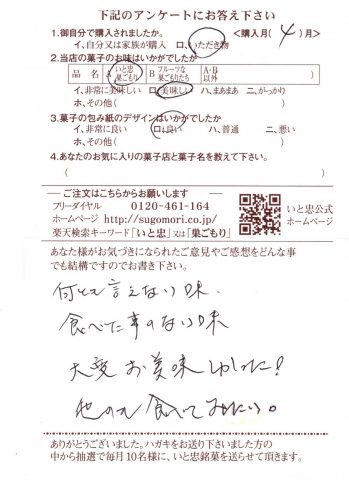 下記のアンケートにお答え下さい
1.御自分で購入されましたか。 <購入月( 4 )月>
イ、自分又は家族が購入 ロ、いただき物
2.当店の菓子のお味はいかがでしたか
品 名 A いと忠巣ごもり B フルーツな巣ごもりたち A・B以外( )
イ、非常に美味しい ロ、美味しい ハ、まあまあ ニ、がっかり
ホ、その他( )
3.菓子の包み紙のデザインはいかがでしたか
イ、非常に良い ロ、良い ハ、普通 ニ、悪い
ホ、その他( )
4.あなたのお気に入りの菓子店と菓子名を教えて下さい。
( )
ご注文はこちらからお願いします
フリーダイヤル 0120-461-164
ホームページ http://sugomori.co.jp/
楽天検索キーワード「いと忠」又は「巣ごもり」
いと忠公式
ホームページ
あなた様がお気づきになられたご意見やご感想をどんな事
でも結構ですのでお書き下さい。
何とも言えない味.
食べた事のない味
大変お美味しかった!
他のも食べてみたい。
ありがとうございました。ハガキをお送り下さいました方の
中から抽選で毎月10名様に、いと忠銘菓を送らせて頂きます。